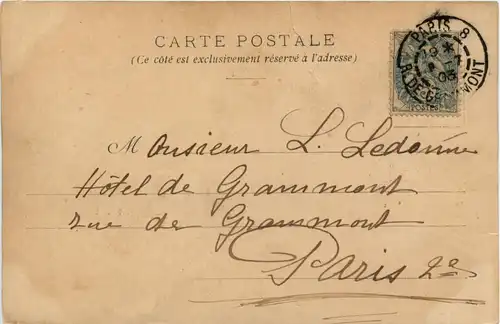 CARTE POSTALE
(Ce côté est exclusivement réservé à l'adresse)
PARIS 8
R. DE GRAMMONT
POSTES
Monsieur L. Ledonne
Hôtel de Grammont
rue de Grammont
Paris 2e